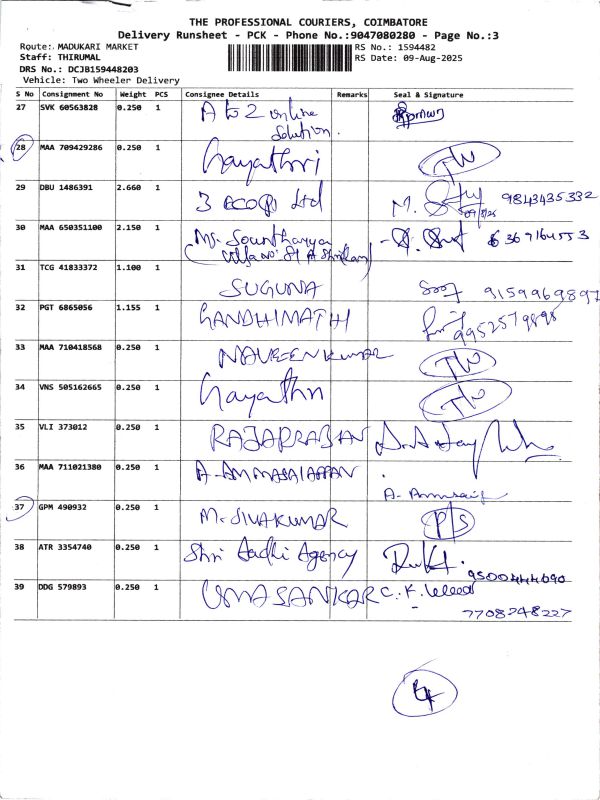 THE PROFESSIONAL COURIERS, COIMBATORE
Delivery Runsheet - PCK - Phone No.:9047080280 - Page No.:3
Route: MADUKARI MARKET
Staff: THIRUMAL
DRS No.: DCJB159448203
Vehicle: Two Wheeler Delivery
RS No.: 1594482
RS Date: 09-Aug-2025
S No Consignment No Weight PCS Consignee Details Remarks Seal & Signature
27 SVK 60563828 0.250 1 A to Z online
Solution.
28 MAA 709429286 0.250 1 Gayathri T/W
29 DBU 1486391 2.660 1 3 ECOQ Ltd M. 9843435332
30 MAA 650351100 2.150 1 Ms. Sountharyya
6367164553
31 TCG 41833372 1.100 1 SUGUNA 9159969897
32 PGT 6865056 1.155 1 GANDHIMATHI 9952579898
33 MAA 710418568 0.250 1 NAVREEN KUMAR T/W
34 VNS 505162665 0.250 1 Gayathri T/W
35 VLI 373012 0.250 1 RAJAPRABAN
36 MAA 711021380 0.250 1 A-AMMASAIAPPAN
37 GPM 490932 0.250 1 M-SIVAKUMAR P/S
38 ATR 3354740 0.250 1 Shri Aadhi Agency 9500444090
39 DDG 579893 0.250 1 UMASANKAR C.K.
7708248227